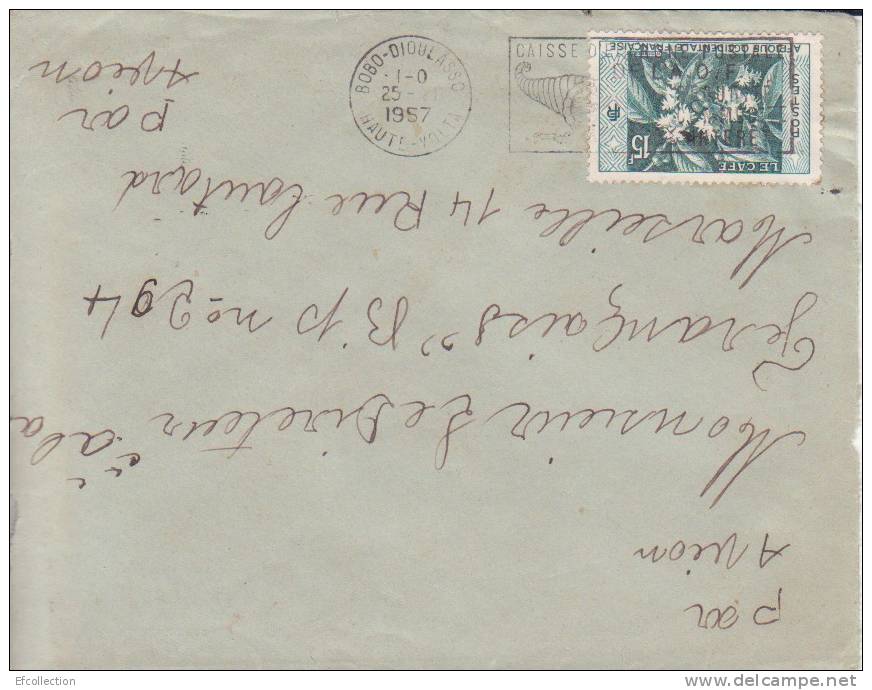 par
Avion
Monsieur Le Direteur àla
Français" B'p no 294
Marseille 14 Rue Lautard
par
Avion
BOBO-DIOULASSO
1-0
25 -
1957
HAUTE-VOLTA
CAISSE
A.O.F.
AFRIQUE OCCIDENTALE FRANÇAISE
POSTES
15F
LE CAFÉ
Efcollection
delcampe.net